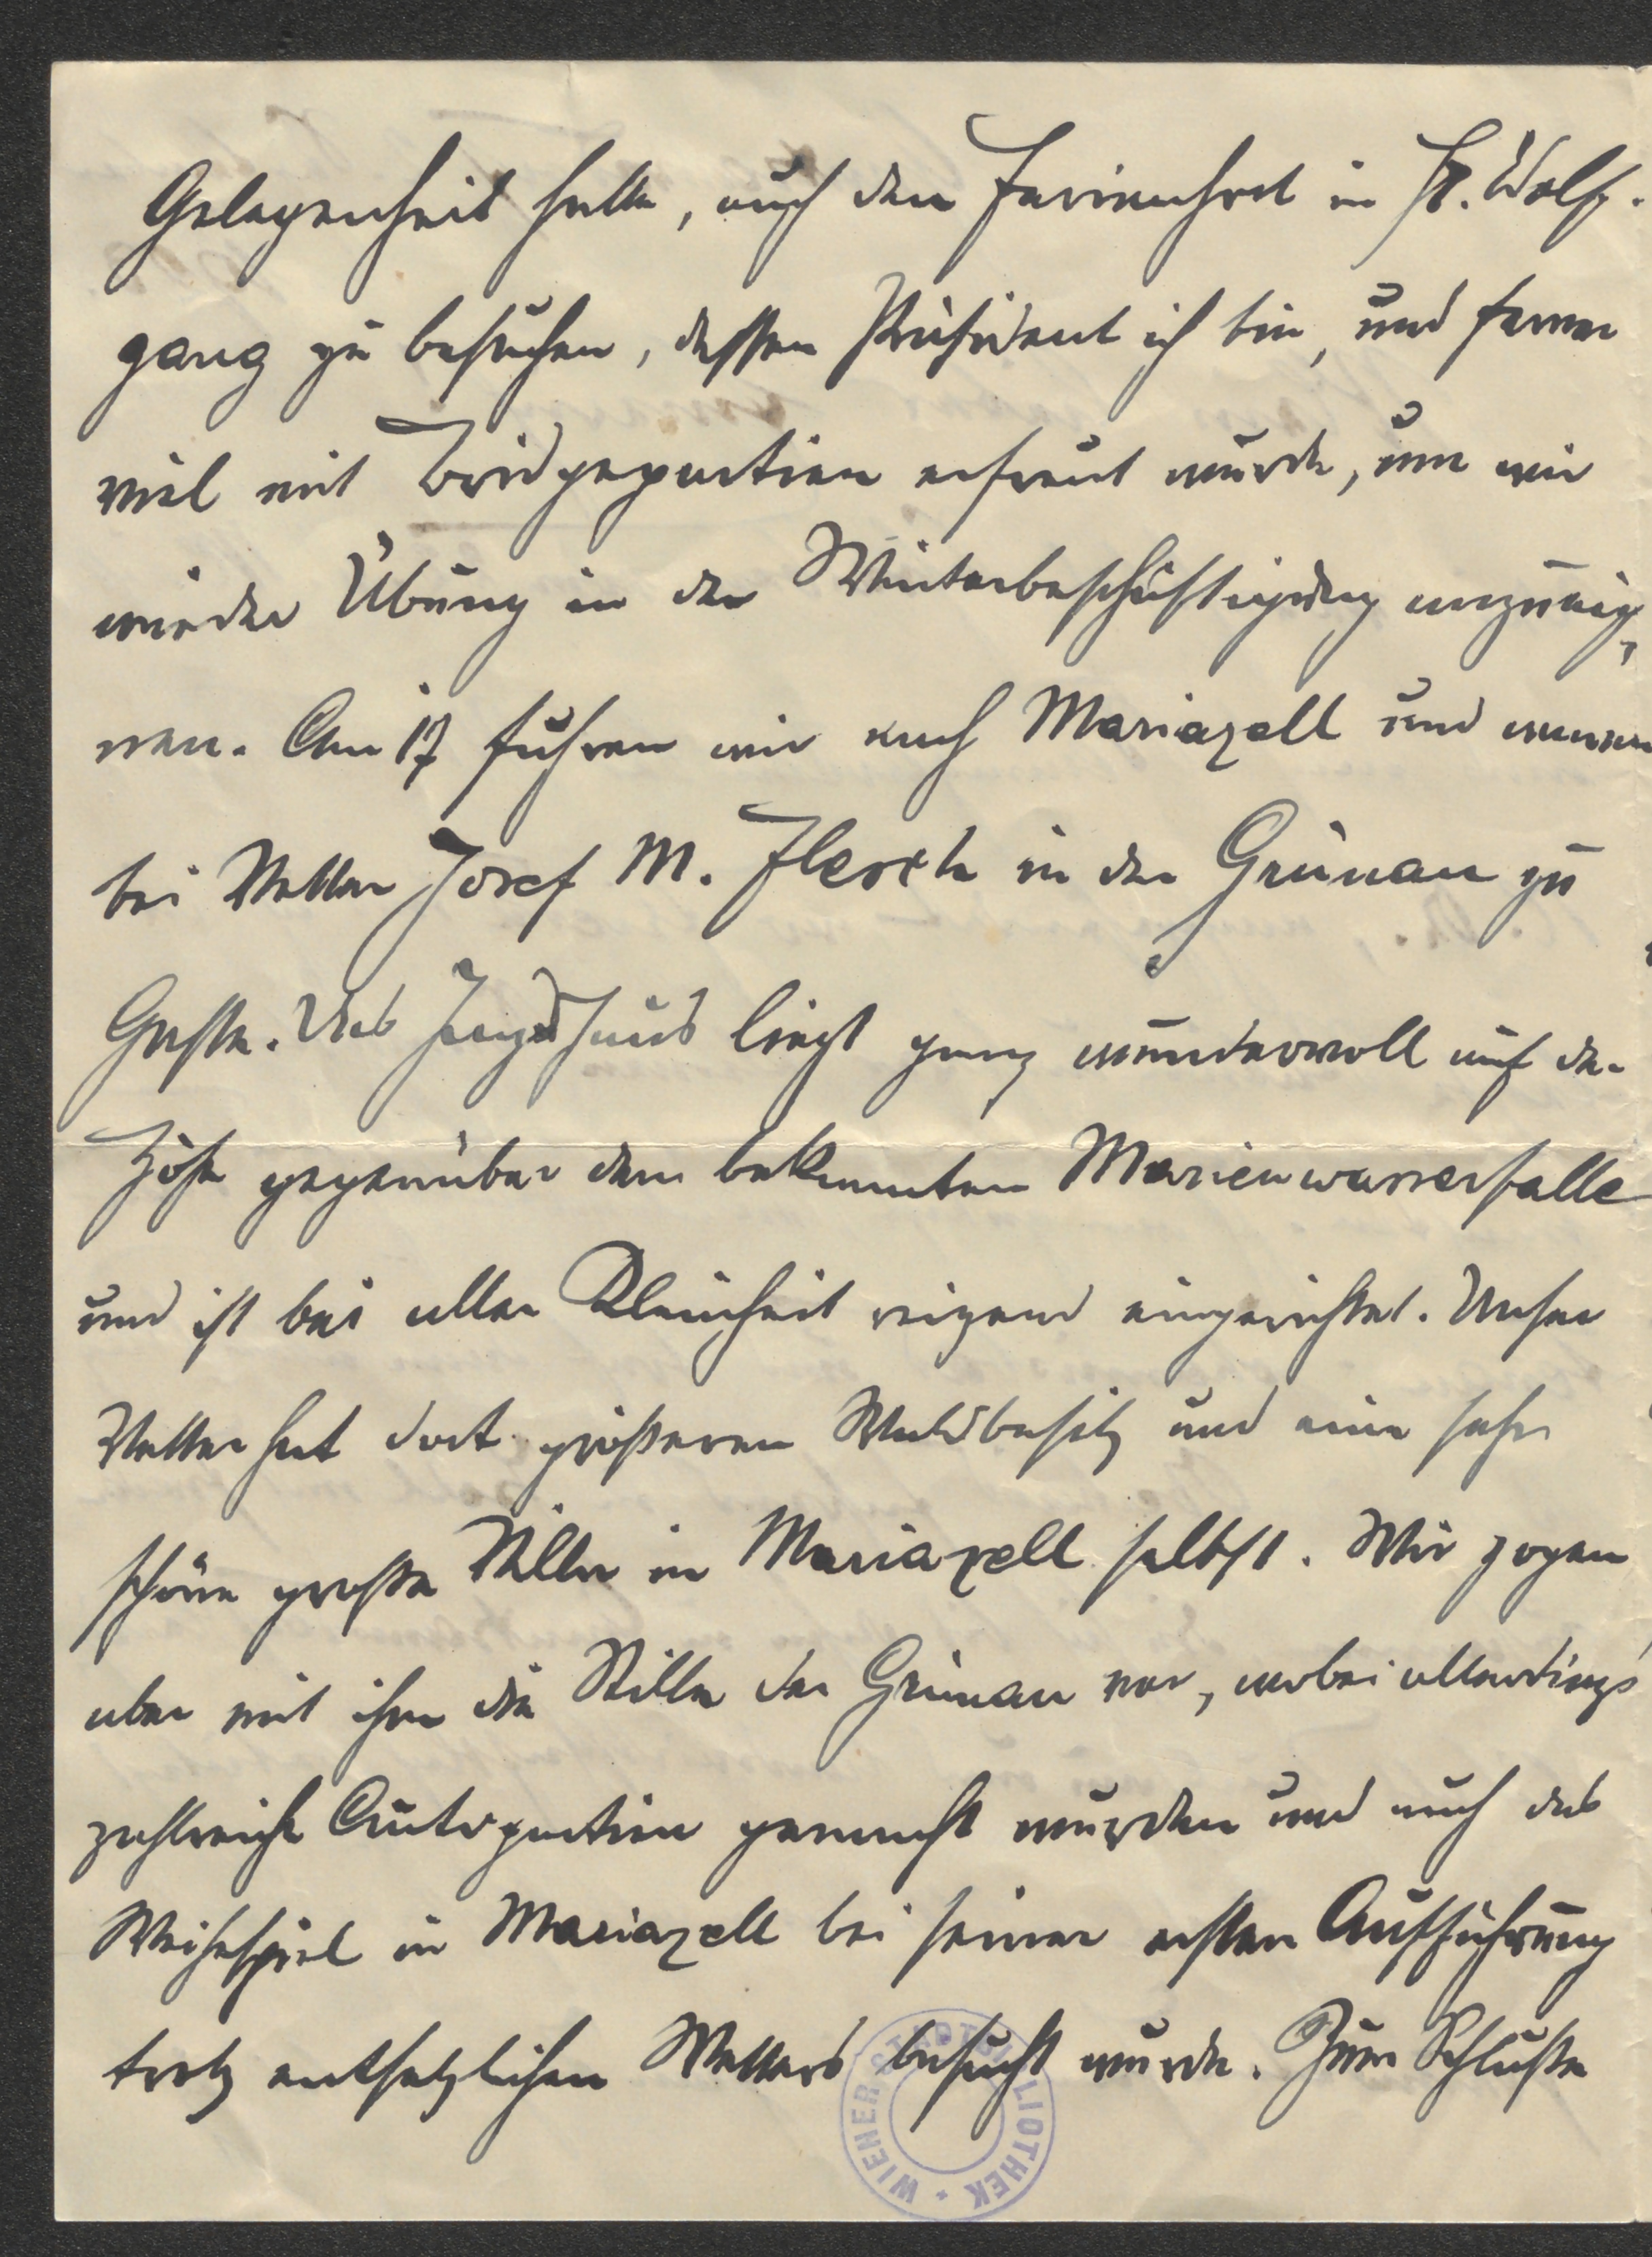 Gelegenheit hatte, auch den Ferienhort in St. Wolf-
gang zu besuchen, dessen Präsident ich bin, und ferner
viel mit Bridgepartien erfreut wurde, um mir
wieder Übung in der Winterbeschäftigung anzueig-
nen. Am 17 fuhren wir nach Mariazell und waren
bei Vetter Josef M. Flesch in der Grünau zu
Gaste. Das Jagdhaus liegt ganz wundervoll auf der
Höhe gegenüber dem bekannten Marienwasserfalle
und ist bei aller Kleinheit reizend eingerichtet. Unser
Vetter hat dort größeren Waldbesitz und eine sehr
schöne große Villa in Mariazell selbst. Wir zogen
aber mit ihm die Stille der Grünau vor, wobei allerdings
zahlreiche Autopartien gemacht wurden und auch das
Weihespiel in Mariazell bei seiner ersten Aufführung
trotz entsetzlichen Wetters besucht wurde. Zum Schlusse
WIENER STADTBIBLIOTHEK